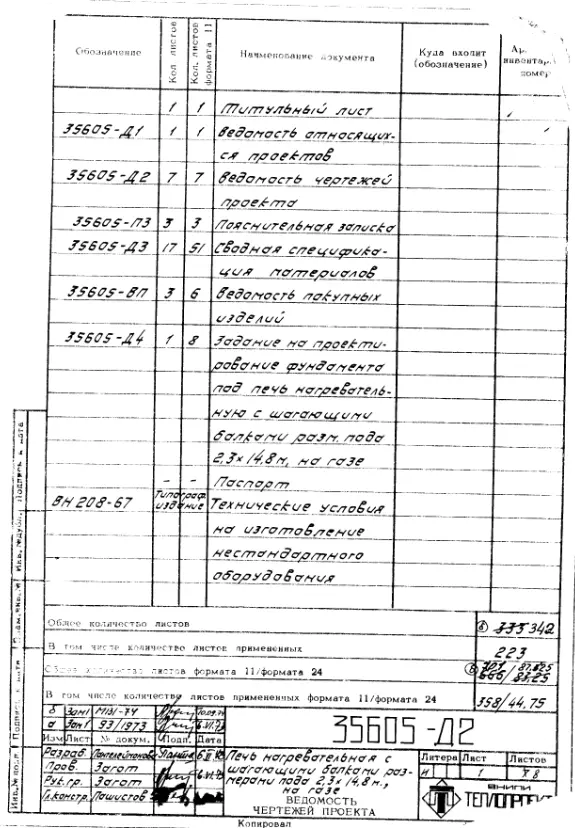 Обозначение Кол. листов Кол. листов формата 11 Наименование документа Куда входит (обозначение)
1 1 Титульный лист
35605-Д1 1 1 Ведомость относящих-
ся проектов
35605-Д2 7 7 Ведомость чертежей
проекта
35605-ПЗ 3 3 Пояснительная записка
35605-Д3 17 51 Сводная специфика-
ция материалов
35605-ВП 3 6 Ведомость покупных
изделий
35605-Д4 1 8 Задание на проекти-
рование фундамента
под печь нагреватель-
ную с шагающими
балками разм. пода
2,3×14,8м, на газе
– – Паспорт
ВН 208-67 Типограф. издание Технические условия
на изготовление
нестандартного
оборудования
Общее количество листов 333 342
В том числе количество листов примененных 223
Общее количество листов формата 11/формата 24
В том числе количество листов примененных формата 11/формата 24 358/44.75
35605-Д2
Изм Лист № докум. Подп. Дата
Разраб.
Пров. Загот
Рук.гр. Загот
Гл.констр. Пашистов
Печь нагревательная с
шагающими балками раз-
мерами пода 2,3×14,8м.,
на газе
ВЕДОМОСТЬ
ЧЕРТЕЖЕЙ ПРОЕКТА
Литера Лист Листов
И 1 8
ВНИПИ
ТЕПЛОПРОЕКТ
Копировал